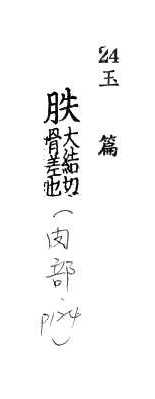 24玉篇
胅大結切骨差也(肉部、p124)